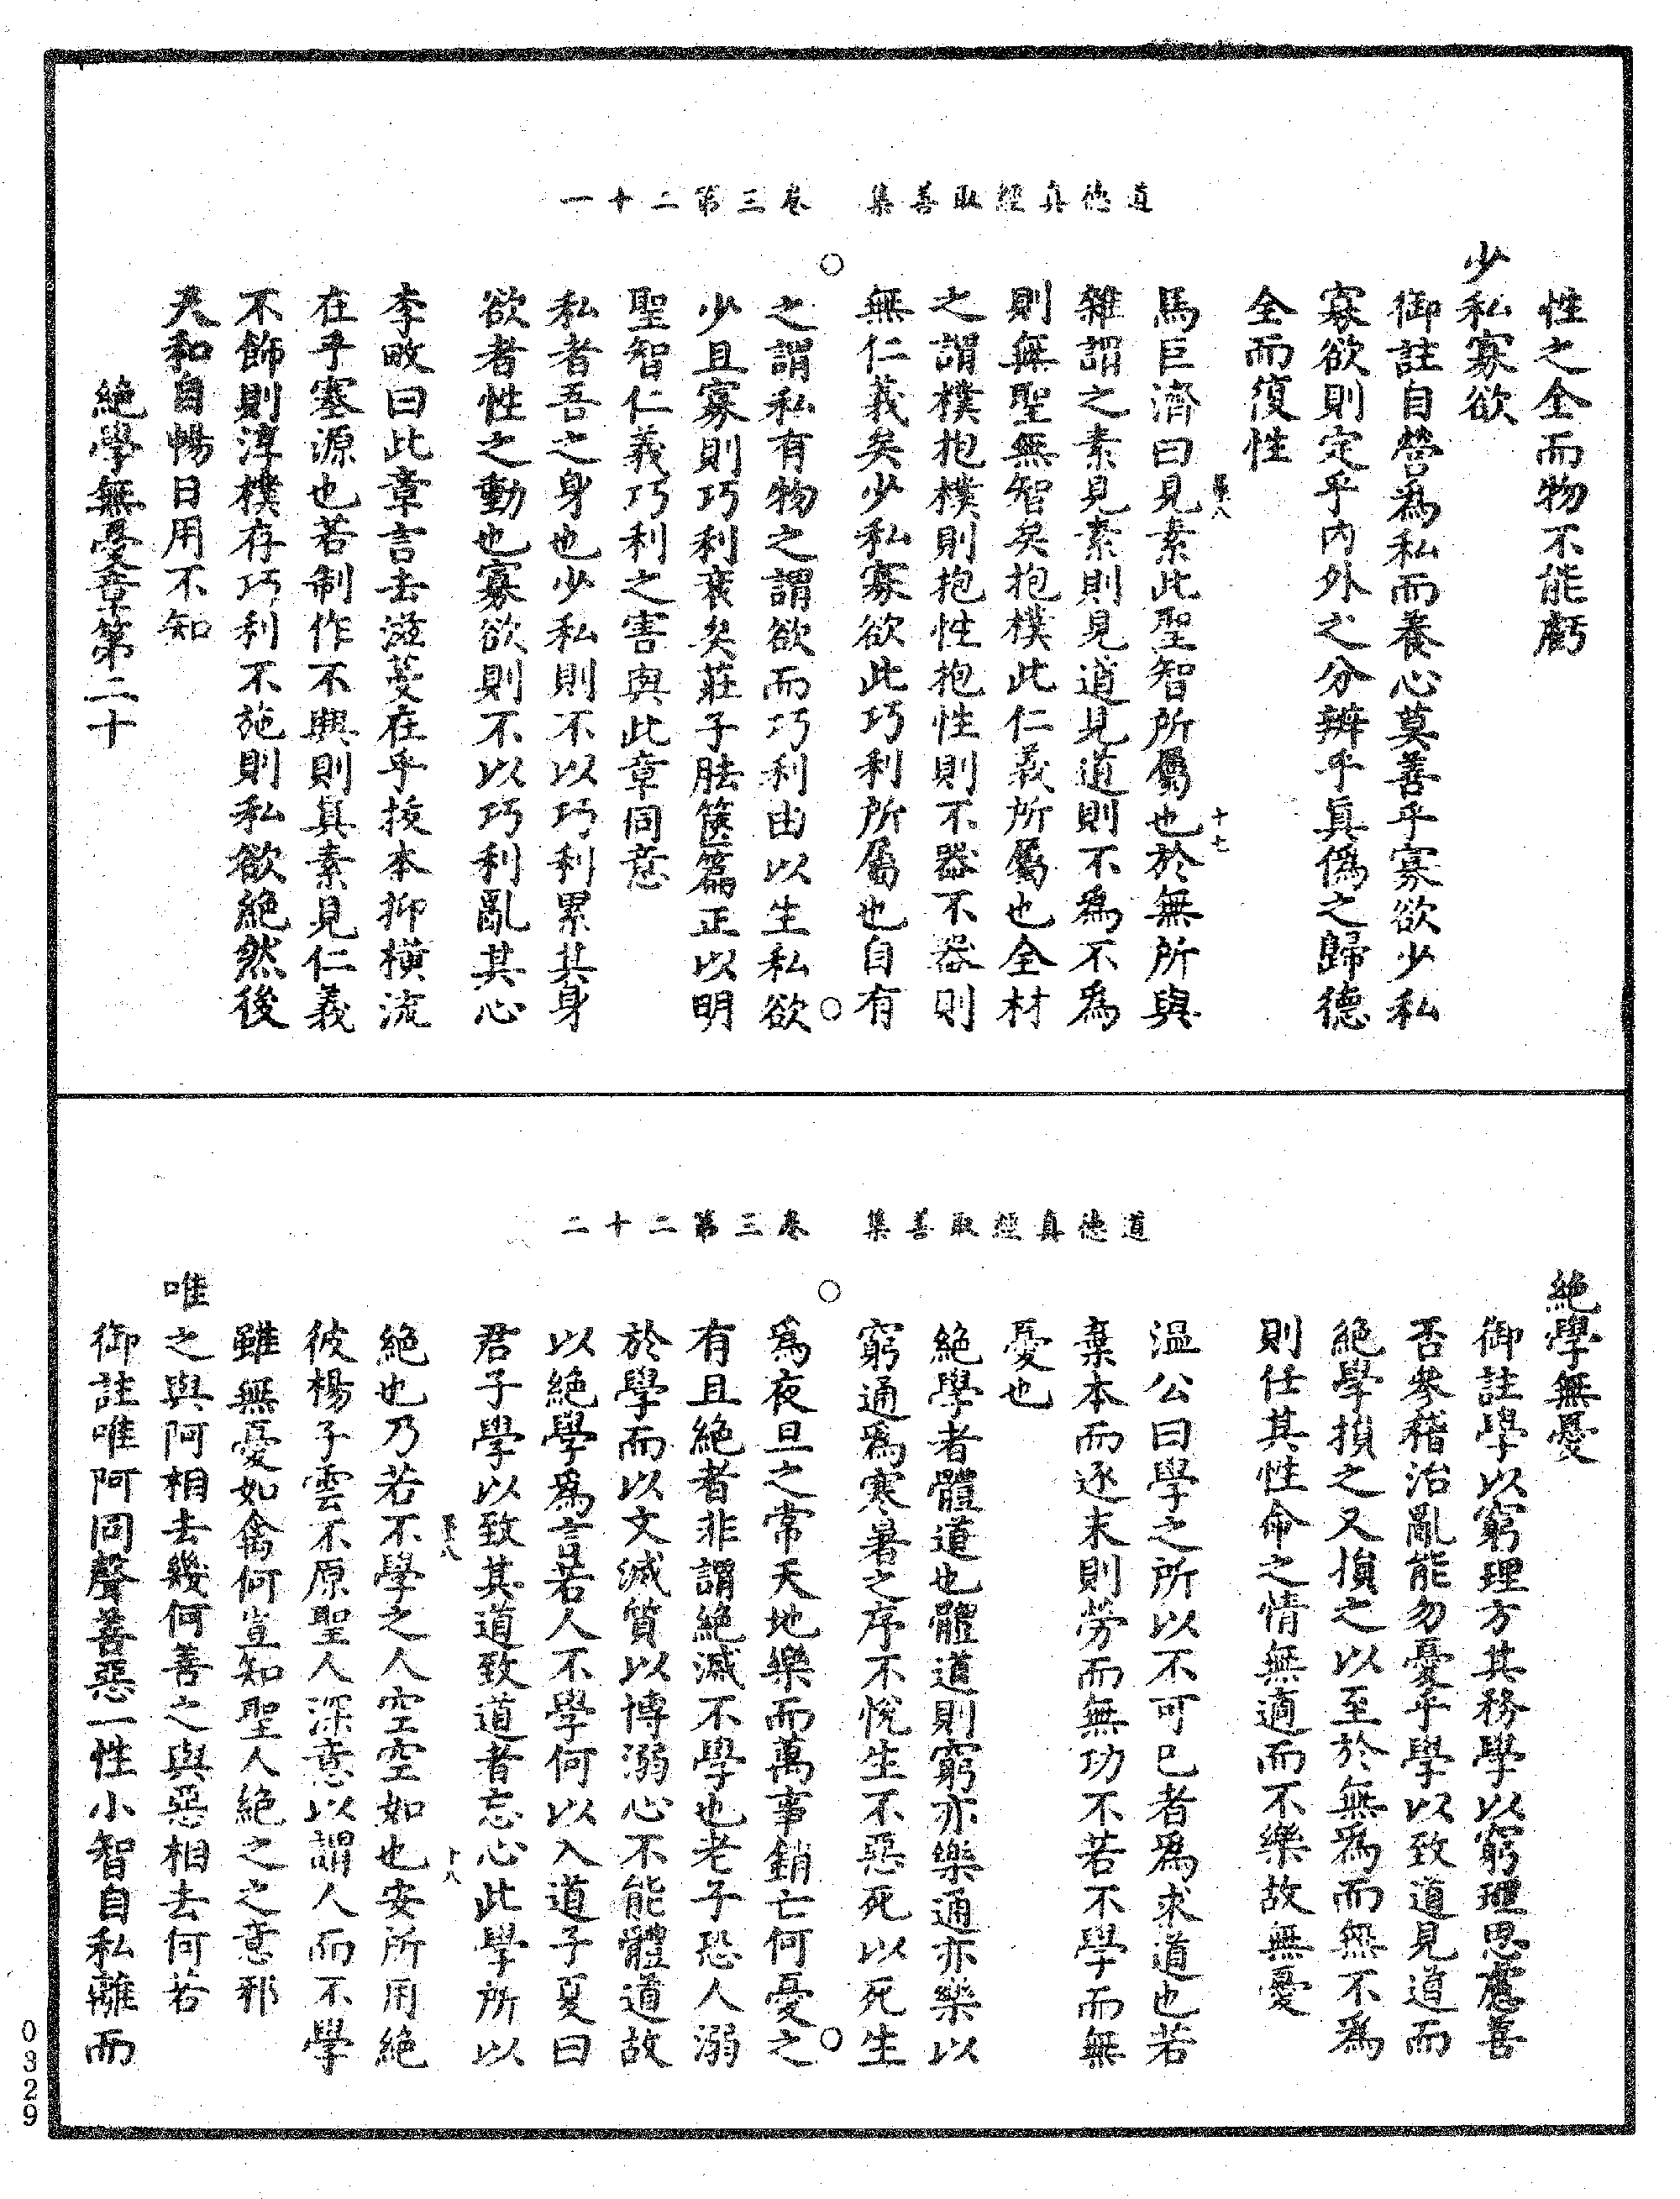 道德真經取善集　卷三第二十一
性之全而物不能虧
少私寡欲
御註自營爲私而養心莫善乎寡欲少私
寡欲則定乎內外之分辨乎真僞之歸德
全而復性
馬巨濟曰見素此聖智所屬也於無所與
雜謂之素見素則見道見道則不爲不爲
則無聖無智矣抱樸此仁義所屬也全材
之謂樸抱樸則抱性抱性則不器不器則
無仁義矣少私寡欲此巧利所屬也自有
之謂私有物之謂欲而巧利由以生私欲
少且寡則巧利衰矣莊子胠篋篇正以明
聖智仁義巧利之害與此章同意
私者吾之身也少私則不以巧利累其身
欲者性之動也寡欲則不以巧利亂其心
李畋曰此章言去滋蔓在乎拔本抑橫流
在乎塞源也若制作不興則真素見仁義
不飾則淳樸存巧利不施則私欲絕然後
天和自暢日用不知
絕學無憂章第二十
十七
道德真經取善集　卷三第二十二
絕學無憂
御註學以窮理方其務學以窮理思慮善
否參稽治亂能勿憂乎學以致道見道而
絕學損之又損之以至於無爲而無不爲
則任其性命之情無適而不樂故無憂
溫公曰學之所以不可已者爲求道也若
棄本而逐末則勞而無功不若不學而無
憂也
絕學者體道也體道則窮亦樂通亦樂以
窮通爲寒暑之序不悅生不惡死以死生
爲夜旦之常天地樂而萬事銷亡何憂之
有且絕者非謂絕滅不學也老子恐人溺
於學而以文滅質以博溺心不能體道故
以絕學爲言若人不學何以入道子夏曰
君子學以致其道致道者忘心此學所以
絕也乃若不學之人空空如也安所用絕
彼楊子雲不原聖人深意以謂人而不學
雖無憂如禽何豈知聖人絕之之意邪
唯之與阿相去幾何善之與惡相去何若
御註唯阿同聲善惡一性小智自私離而
十八
0329